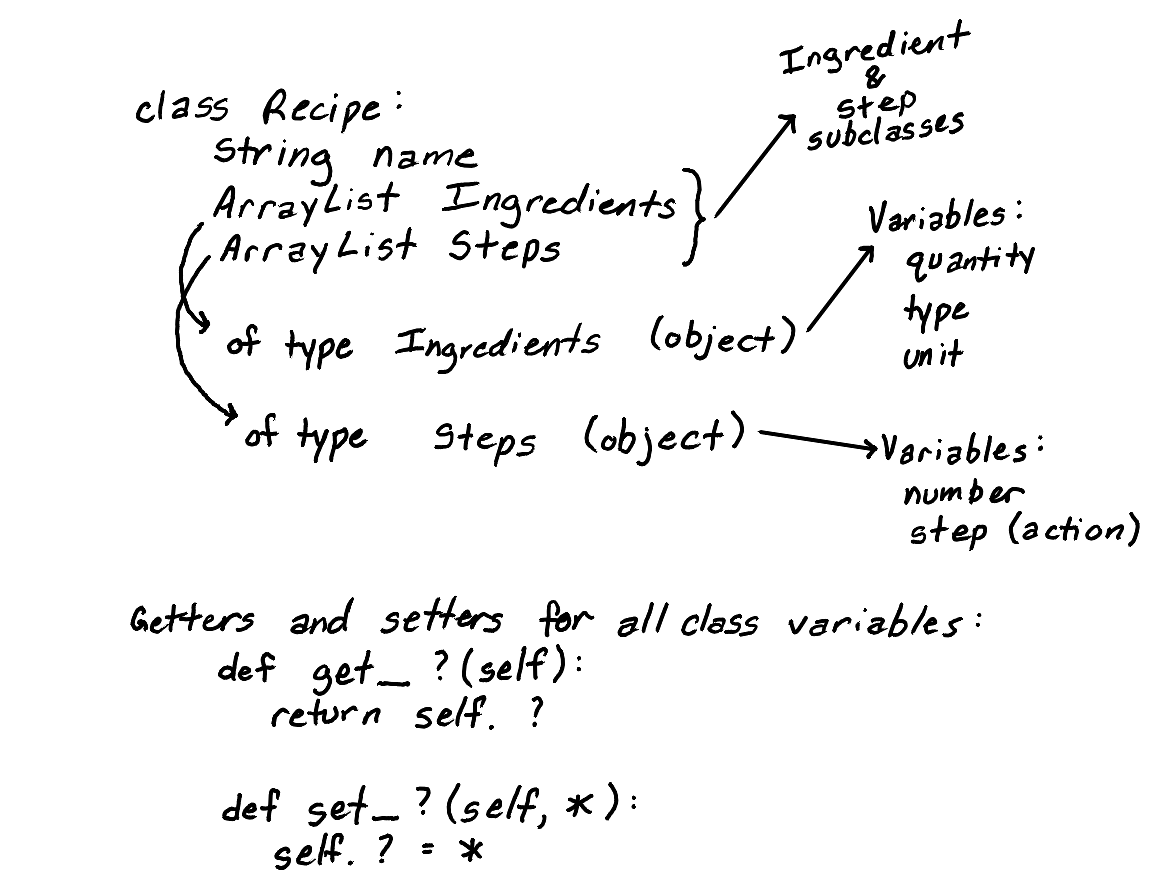 class Recipe:
String name
ArrayList Ingredients
ArrayList Steps
Ingredient
&
step
subclasses
of type Ingredients (object)
Variables:
quantity
type
unit
of type Steps (object)
Variables:
number
step (action)
Getters and setters for all class variables:
def get_ ?(self):
return self. ?
def set_ ?(self, *):
self. ? = *